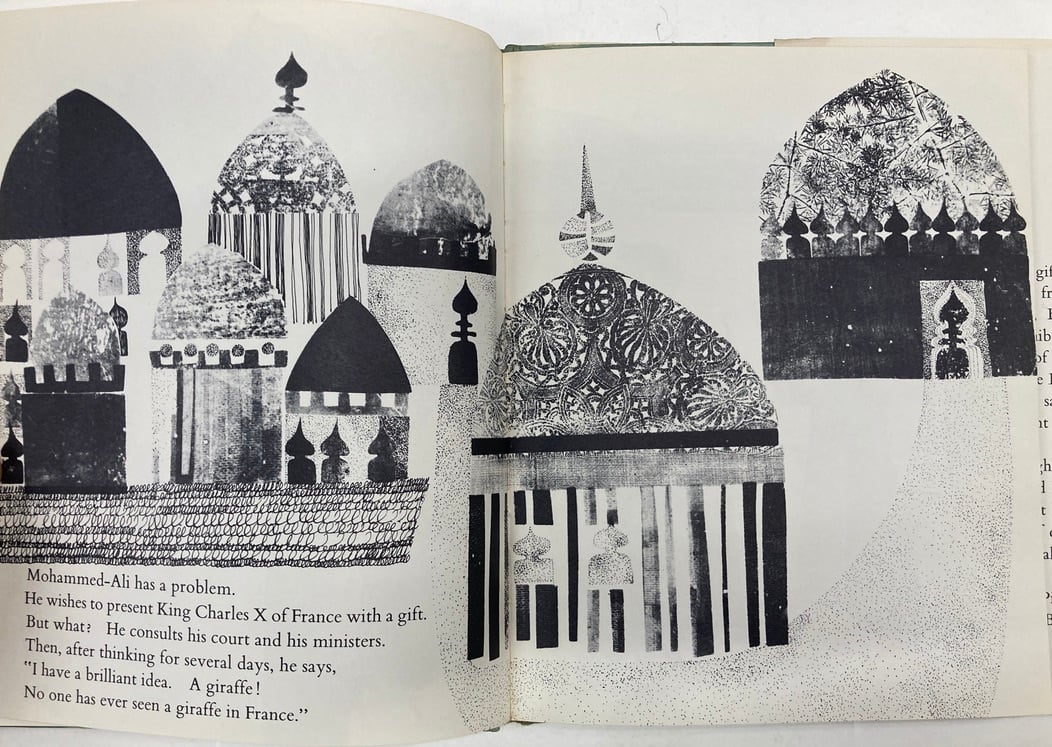 Mohammed-Ali has a problem.
He wishes to present King Charles X of France with a gift.
But what? He consults his court and his ministers.
Then, after thinking for several days, he says,
"I have a brilliant idea. A giraffe!
No one has ever seen a giraffe in France."